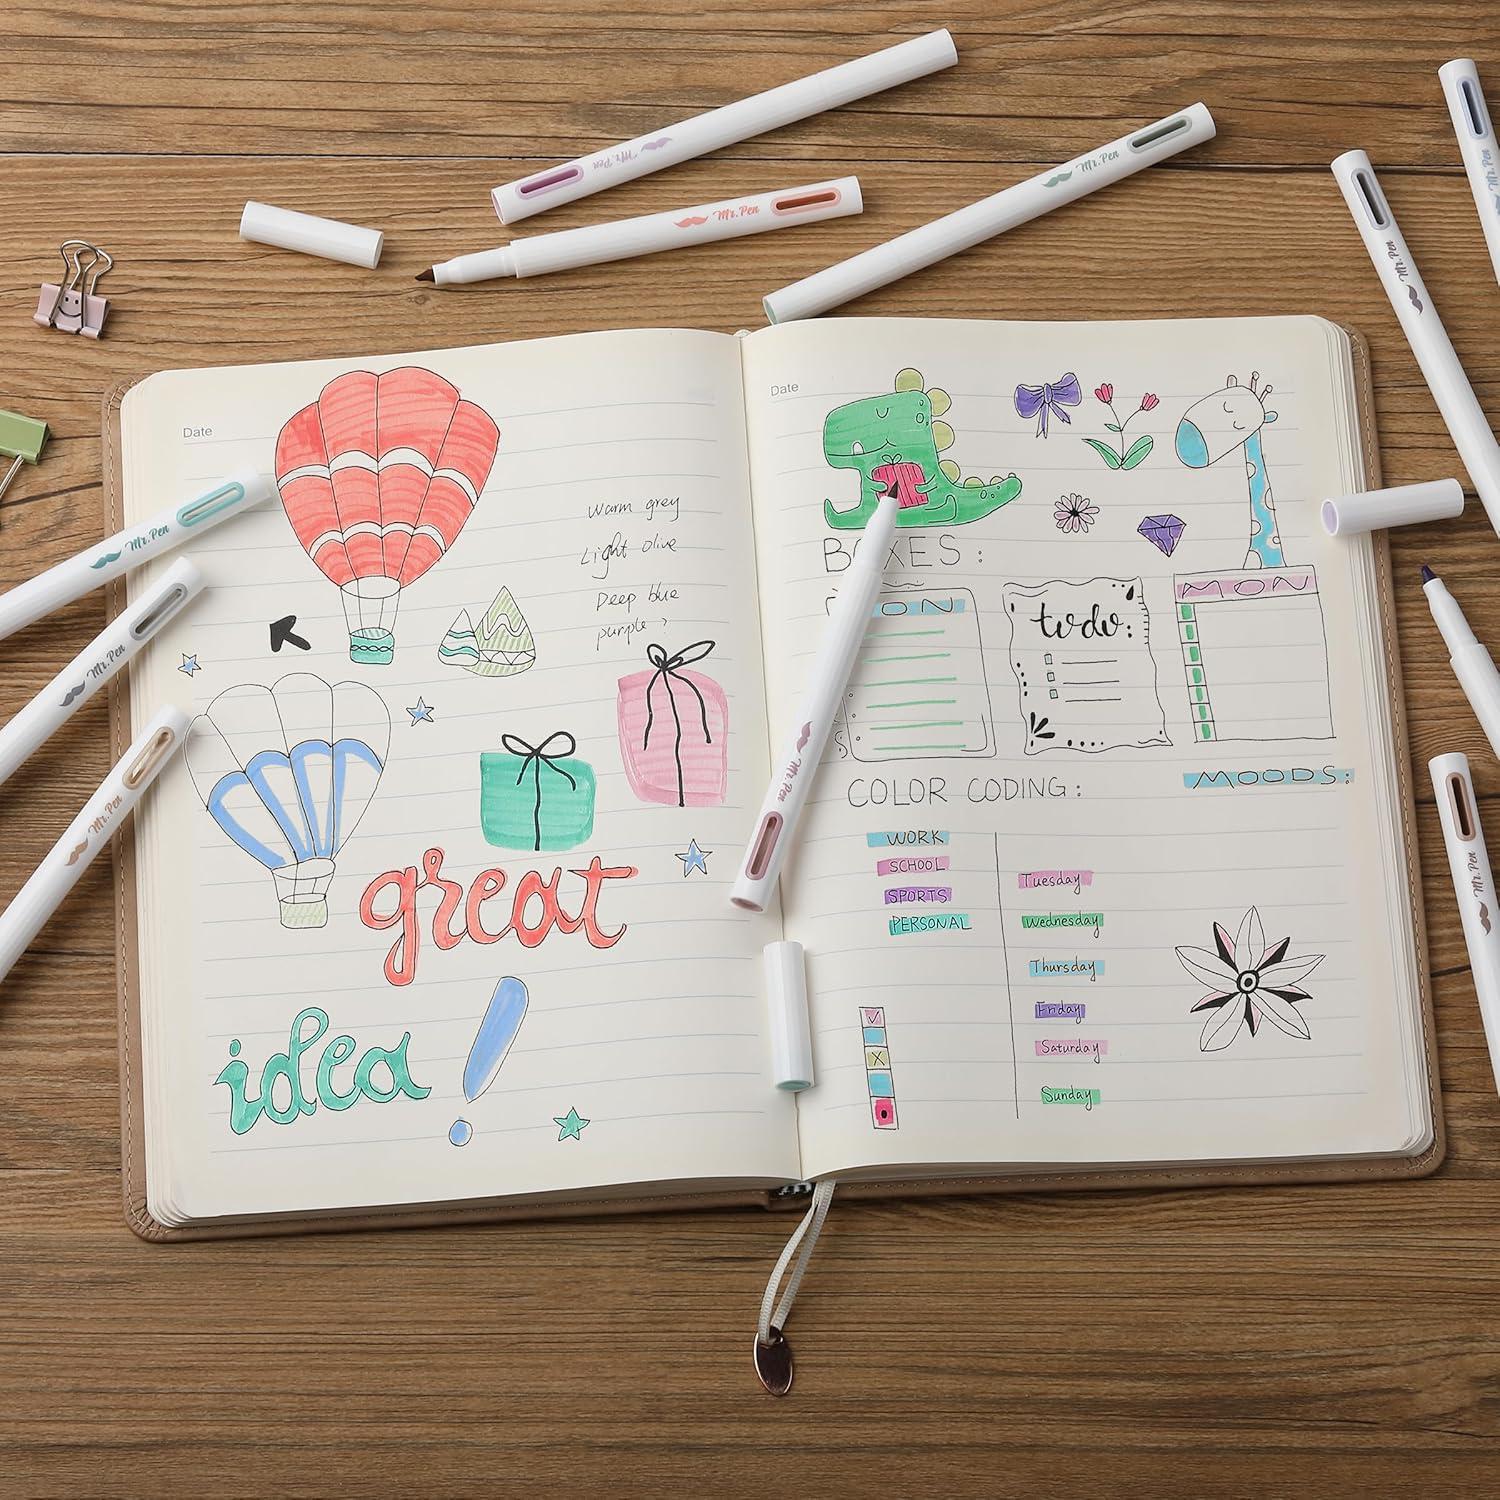 Mr. Pen
Mr. Pen
Mr. Pen
Mr. Pen
Mr. Pen
Mr. Pen
Mr. Pen
Mr. Pen
Mr. Pen
Mr. Pen
Date
warm grey
Light olive
Deep blue
purple ?
great
idea !
Date
BOXES :
MON
to do:
COLOR CODING :
MOODS :
WORK
SCHOOL
SPORTS
PERSONAL
Tuesday
Wednesday
Thursday
Friday
Saturday
Sunday
X